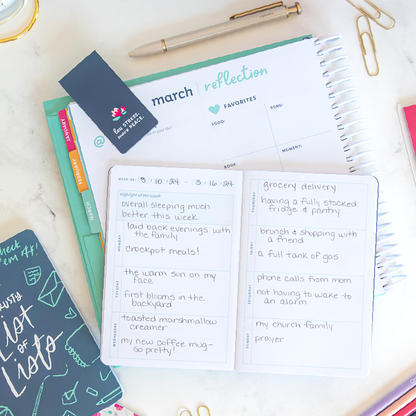 march reflection
FAVORITES
FOOD:
SONG:
BOOK:
MOMENT:
less STRESS,
more PEACE.
JANUARY
FEBRUARY
MARCH
WEEK OF: 3/10/24 - 3/16/24
Highlight of the week:
overall sleeping much
better this week
MONDAY
laid back evenings with
the family
crockpot meals!
TUESDAY
the warm sun on my
face
first blooms in the
backyard
WEDNESDAY
toasted marshmallow
creamer
my new coffee mug-
so pretty!
THURSDAY
grocery delivery
having a fully stocked
fridge & pantry
FRIDAY
brunch & shopping with
a friend
a full tank of gas
SATURDAY
phone calls from mom
not having to wake to
an alarm
SUNDAY
my church family
prayer
check
'em off!
List
of
Lists